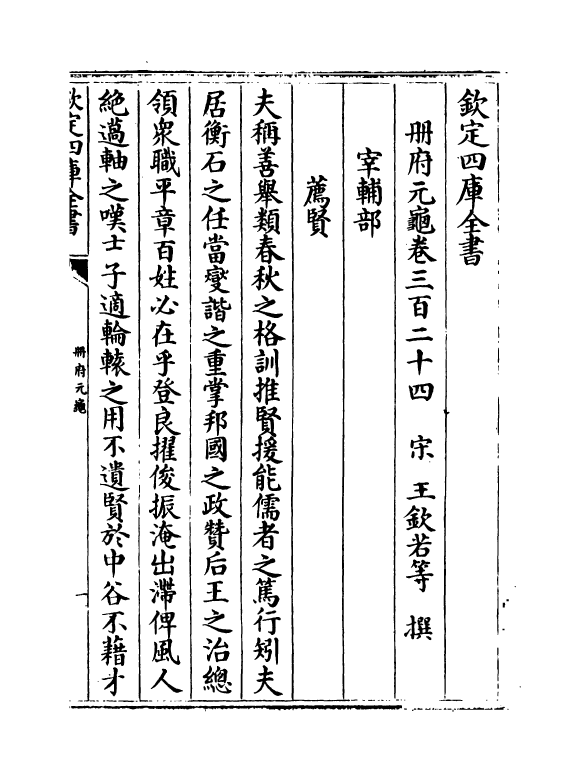 欽定四庫全書
册府元龜卷三百二十四　宋　王欽若等　撰
宰輔部
薦賢
夫稱善舉類春秋之格訓推賢援能儒者之篤行矧夫
居衡石之任當燮諧之重掌邦國之政贊后王之治總
領衆職平章百姓必在乎登良擢俊振淹出滯俾風人
絶薖軸之嘆士子適輪轅之用不遺賢於中谷不藉才
欽定四庫全書
册府元龜
一